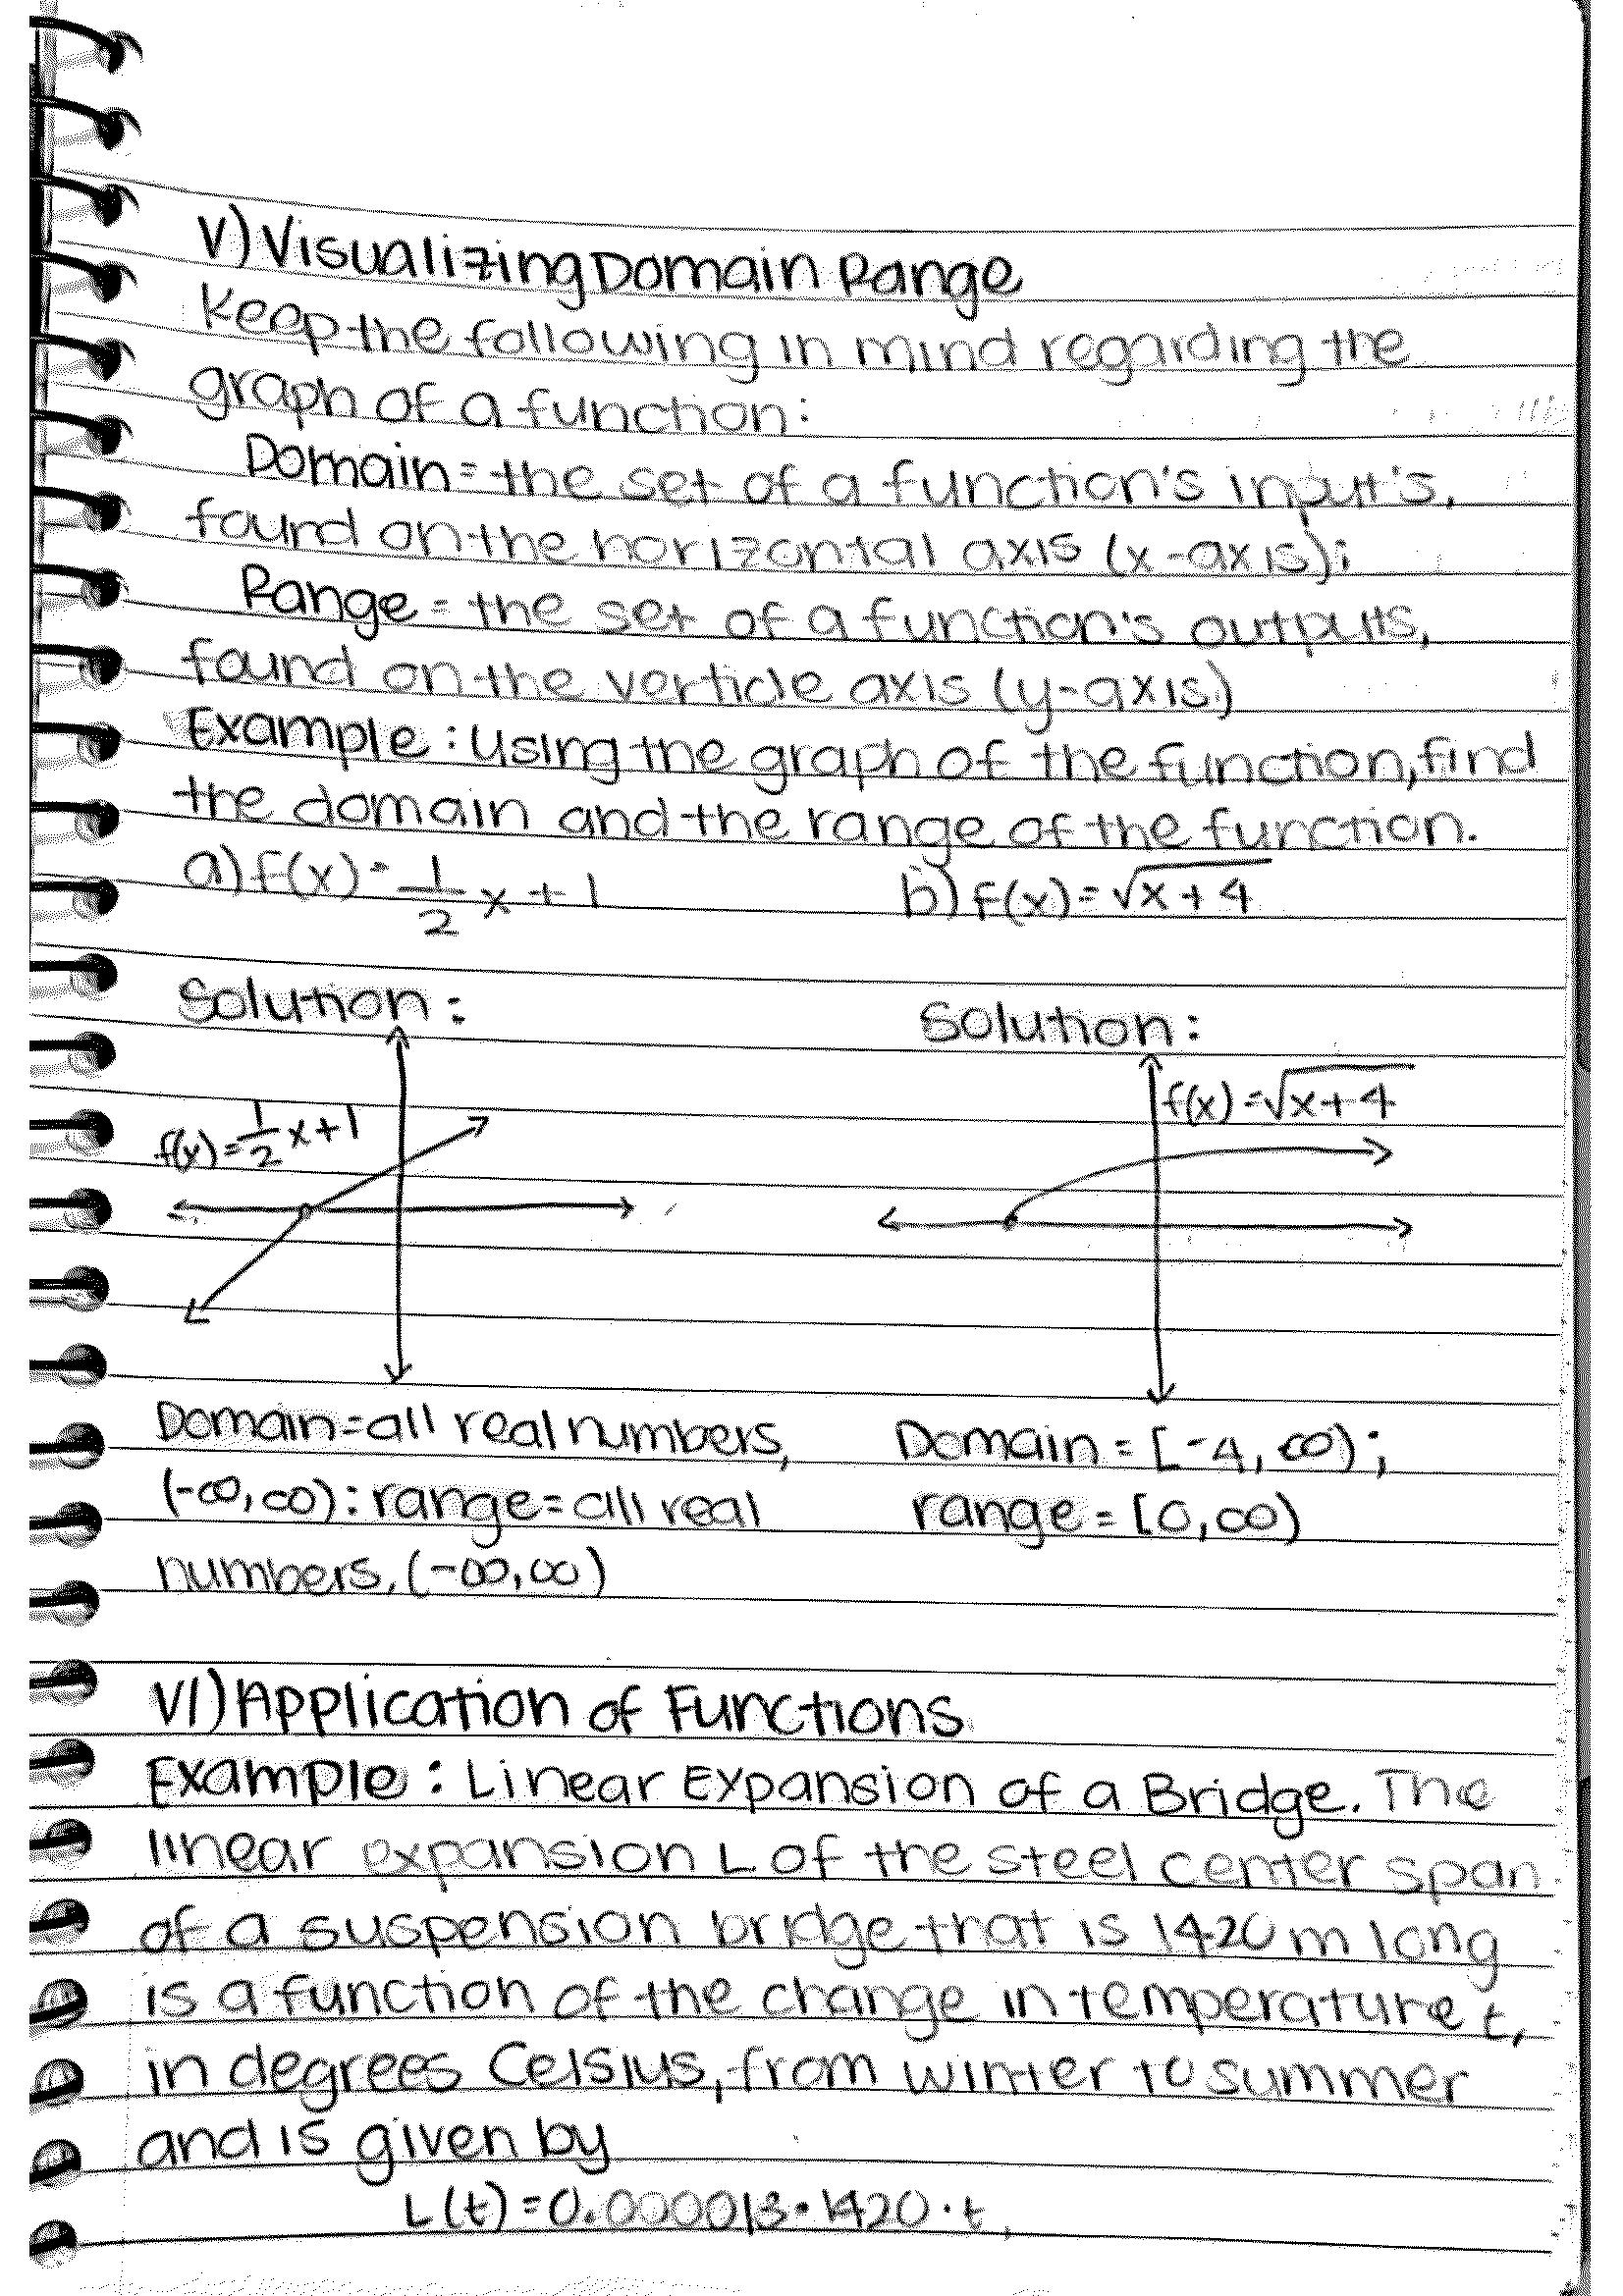 V) Visualizing Domain Range
Keep the following in mind regarding the
graph of a function:
Domain = the set of a function's input's,
found on the horizontal axis (x-axis);
Range = the set of a function's outputs,
found on the verticle axis (y-axis)
Example: Using the graph of the function, find
the domain and the range of the function.
a) f(x) = 1/2 x + 1
b) f(x) = √x + 4
Solution:
f(x) = 1/2 x + 1
Domain = all real numbers,
(-∞, ∞): range = all real
numbers, (-∞, ∞)
Solution:
f(x) = √x + 4
Domain = [-4, ∞);
range = [0, ∞)
VI) Application of Functions
Example: Linear Expansion of a Bridge. The
linear expansion L of the steel center span
of a suspension bridge that is 1420 m long
is a function of the change in temperature t,
in degrees Celsius, from winter to summer
and is given by
L(t) = 0.000013 · 1420 · t,